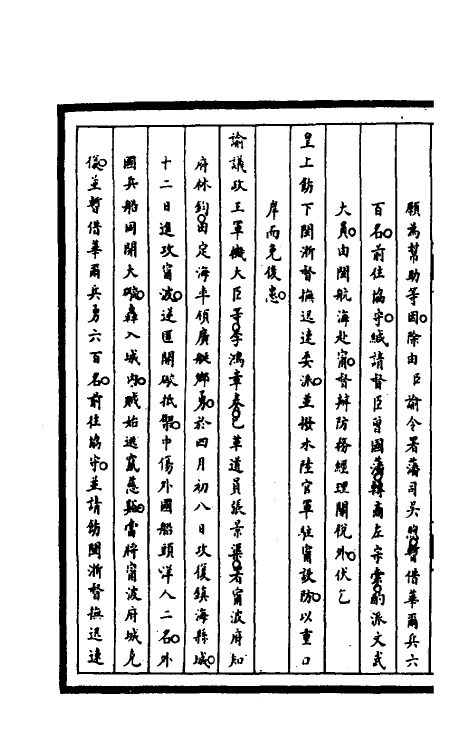 願為幫助等因。除由臣諭令署藩司吳煦暫借華爾兵六
百名。前往協守。緘請督臣曾國藩轉商左宗棠。酌派文武
大員。由閩航海赴甯。督辦防務。經理關稅外。伏乞
皇上飭下閩浙督撫迅速委派。並撥水陸官軍駐甯設防。以重口
岸而免後患。
諭議政王軍機大臣等。李鴻章奏。已革道員張景渠。署甯波府知
府林鈞。由定海率領廣艇鄉勇。於四月初八日攻復鎮海縣城。
十二日進攻甯波。逆匪開礮抵禦。中傷外國船頭洋人二名。外
國兵船同開大礮。轟入城內。賊始逃竄慈谿。當將甯波府城克
復。並暫借華爾兵勇六百名。前往協守。並請飭閩浙督撫迅速